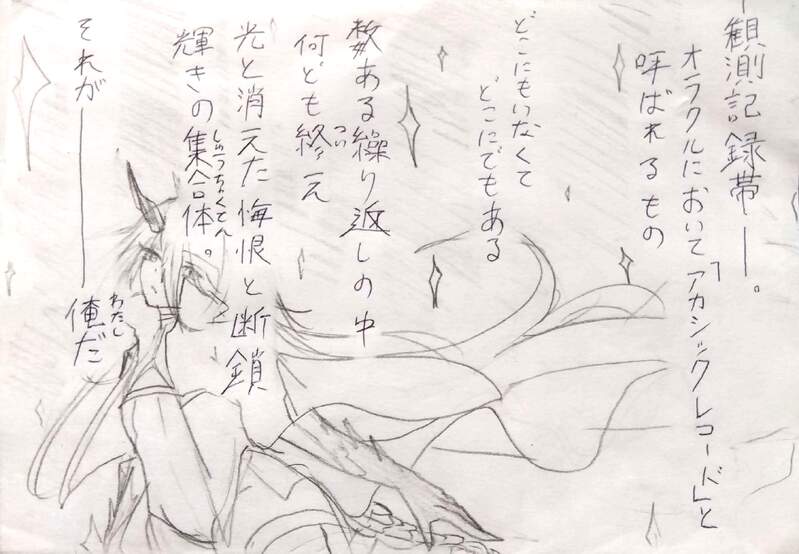 ―観測記録帯―。
オラクルにおいて「アカシックレコード」と
呼ばれるもの
どこにもいなくて
どこにでもある
数ある繰り返しの中
何ども終え
つい
光と消えた悔恨と断鎖
輝きの集合体。
しゅうちゃくてん
それが――俺だ
わたし